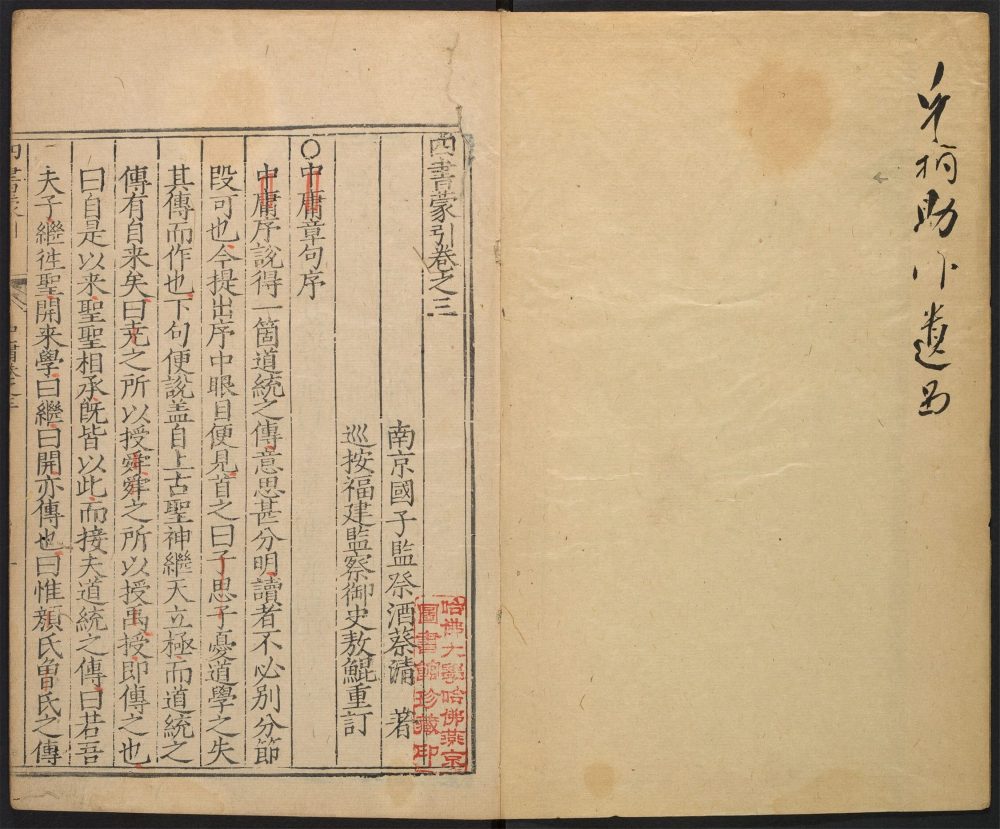 助
遺
四書蒙引卷之三
南京國子監祭酒蔡清 著
巡按福建監察御史敖鯤重訂
○中庸章句序
中庸序說得一箇道統之傳意思甚分明讀者不必別分節
段可也今提出序中眼目便見首之曰子思子憂道學之失
其傳而作也下句便說盖自上古聖神繼天立極而道統之
傳有自来矣曰尭之所以授舜舜之所以授禹授即傳之也
曰自是以来聖聖相承既皆以此而接夫道統之傳曰若吾
夫子繼徃聖開来學曰繼曰開亦傳也曰惟顔氏曾氏之傳
哈佛大學哈佛燕京
圖書館珍藏印